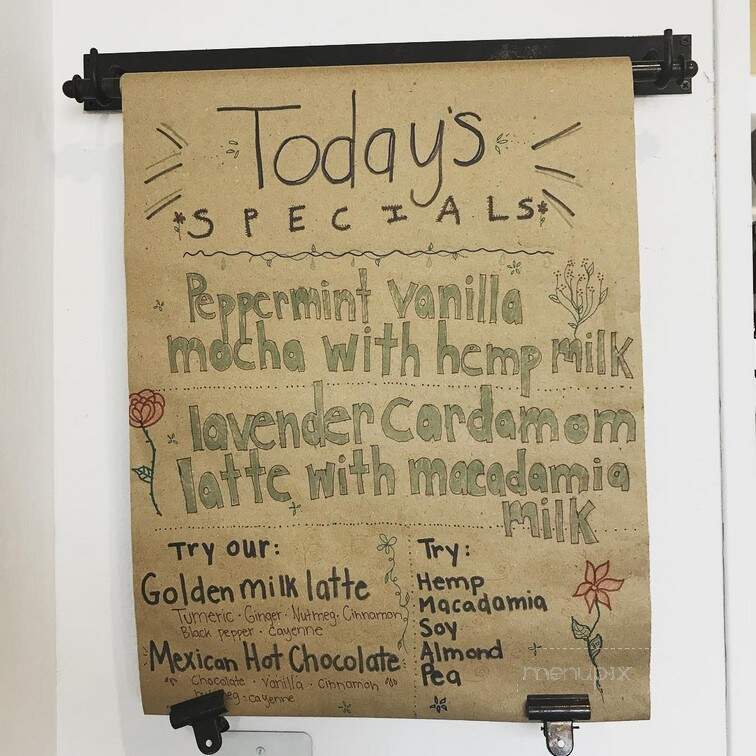 Today's
SPECIALS
Peppermint vanilla
mocha with hemp milk
lavender cardamom
latte with macadamia
milk
Try our:
Golden milk latte
Tumeric · Ginger · Nutmeg · Cinnamon
Black pepper · cayenne
Mexican Hot Chocolate
Chocolate · vanilla · cinnamon
nutmeg · cayenne
Try:
Hemp
Macadamia
Soy
Almond
Pea
menupix